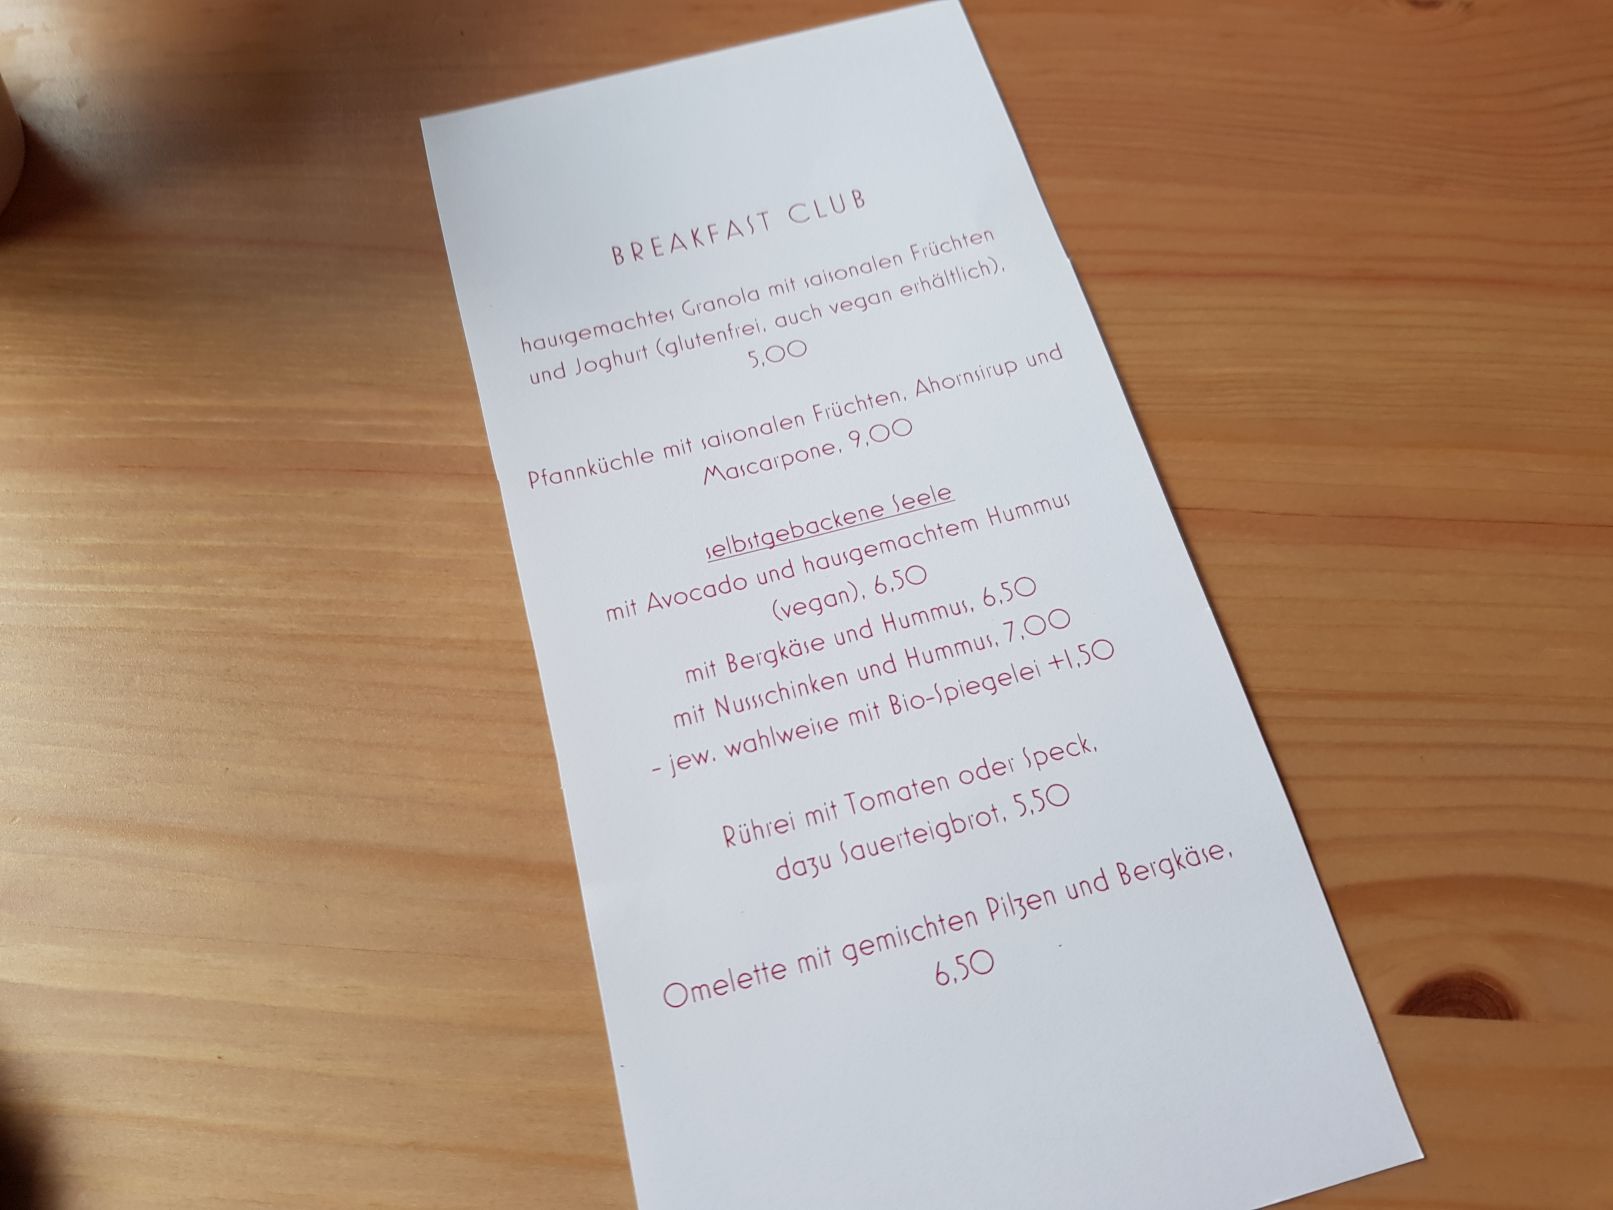 BREAKFAST CLUB
hausgemachtes Granola mit saisonalen Früchten
und Joghurt (glutenfrei, auch vegan erhältlich),
5,00
Pfannküchle mit saisonalen Früchten, Ahornsirup und
Mascarpone, 9,00
selbstgebackene Seele
mit Avocado und hausgemachtem Hummus
(vegan), 6,50
mit Bergkäse und Hummus, 6,50
mit Nussschinken und Hummus, 7,00
- jew. wahlweise mit Bio-Spiegelei +1,50
Rührei mit Tomaten oder Speck,
dazu Sauerteigbrot, 5,50
Omelette mit gemischten Pilzen und Bergkäse,
6,50